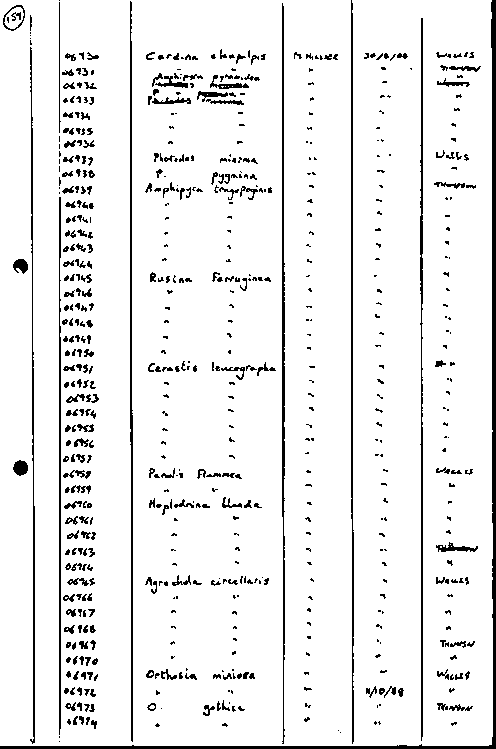 154
06930 Caradina clavipalpis M. Hillier 30/8/88 Walles
06931 Amphipyra pyramidea " " Thompson
06932 " "
06933 " "
06934 " " " " "
06935 " " " " "
06936 " " " " "
06937 Photedes minima " " Walles
06938 P. pygmina " " "
06939 Amphipyra tragopoginis " " Thompson
06940 " " " " "
06941 " " " " "
06942 " " " " "
06943 " " " " "
06944 " " " " "
06945 Rusina ferruginea " " "
06946 " " " " "
06947 " " " " "
06948 " " " " "
06949 " " " " "
06950 " " " " "
06951 Cerastis leucographa " " "
06952 " " " " "
06953 " " " " "
06954 " " " " "
06955 " " " " "
06956 " " " " "
06957 " " " " "
06958 Panolis flammea " " Walles
06959 " " " " "
06960 Hoplodrina blanda " " "
06961 " " " " "
06962 " " " " "
06963 " " " " Thompson
06964 " " " " "
06965 Agrochola circellaris " " Walles
06966 " " " " "
06967 " " " " "
06968 " " " " "
06969 " " " " Thomson
06970 " " " " "
06971 Orthosia miniosa " " Walles
06972 " " " 11/10/88 "
06973 O. gothica " " Thomson
06974 " " " " "